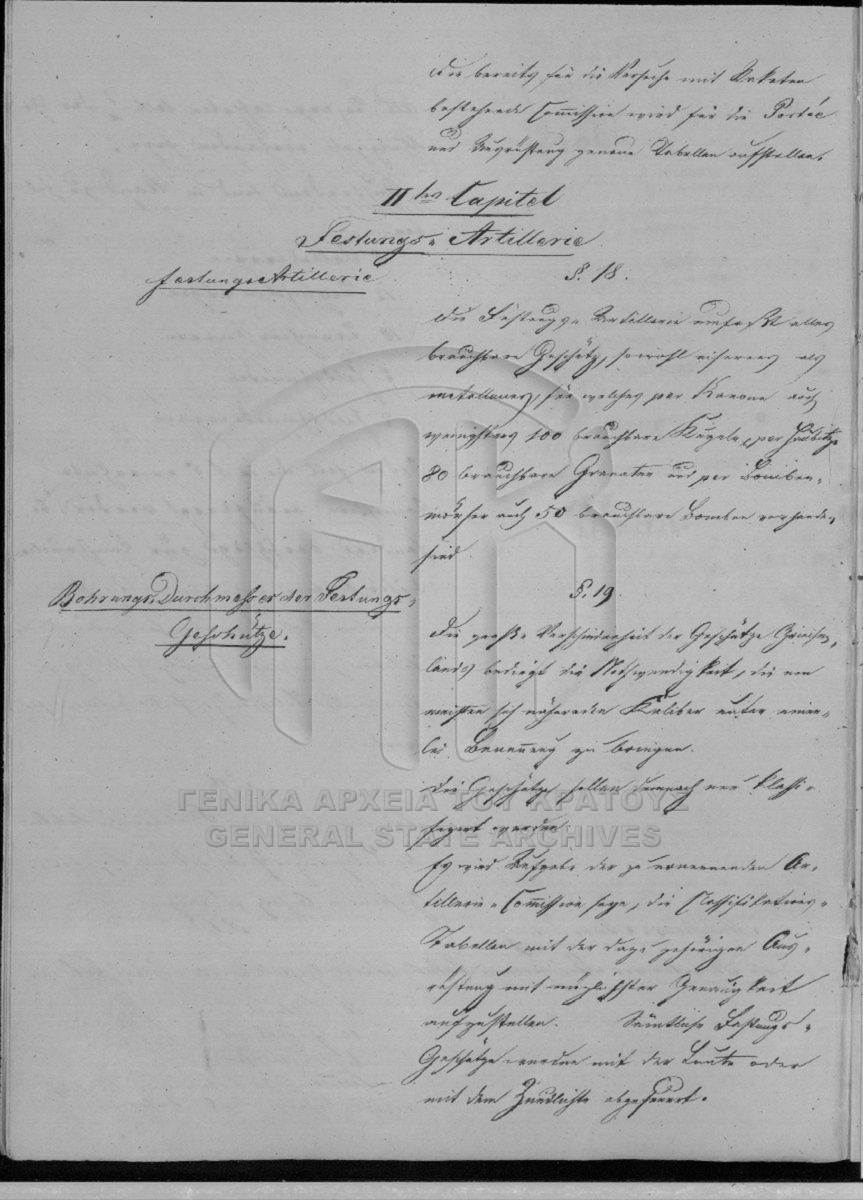 Die bereits für die Versuche mit Raketen
bestehende Commission wird für die Portée
und Ausrüstung genaue Tabellen aufstellen.
II tes Capitel
Festungs-Artillerie
Festungs Artillerie
§. 18.
Die Festungs-Artillerie umfaßt alles
brauchbare Geschütz, sowohl eisernes als
metallenes, für welches per Kanone auch
wenigstens 100 brauchbare Kugeln, per Haubitze
80 brauchbare Granaten und per Bomben-
mörser auch 50 brauchbare Bomben vorhanden
sind.
Bohrungs-Durchmesser der Festungs-
Geschütze.
§. 19.
Die große Verschiedenheit der Geschütze Griechen-
lands bedingt die Nothwendigkeit, die am
meisten sich nähernden Kaliber unter einer-
lei Benennung zu bringen.
Die Geschütze sollen demnach neu klassi-
fizirt werden.
Es wird Aufgabe der zu ernennenden Ar-
tillerie-Commission seyn, die Klassifikations-
Tabellen mit der dazu gehörigen Aus-
rüstung mit möglichster Genauigkeit
aufzustellen. Sämtliche Festungs-
Geschütze werden mit der Lunte oder
mit dem Zündlichte abgefeuert.
ΓΕΝΙΚΑ ΑΡΧΕΙΑ ΤΟΥ ΚΡΑΤΟΥΣ
GENERAL STATE ARCHIVES